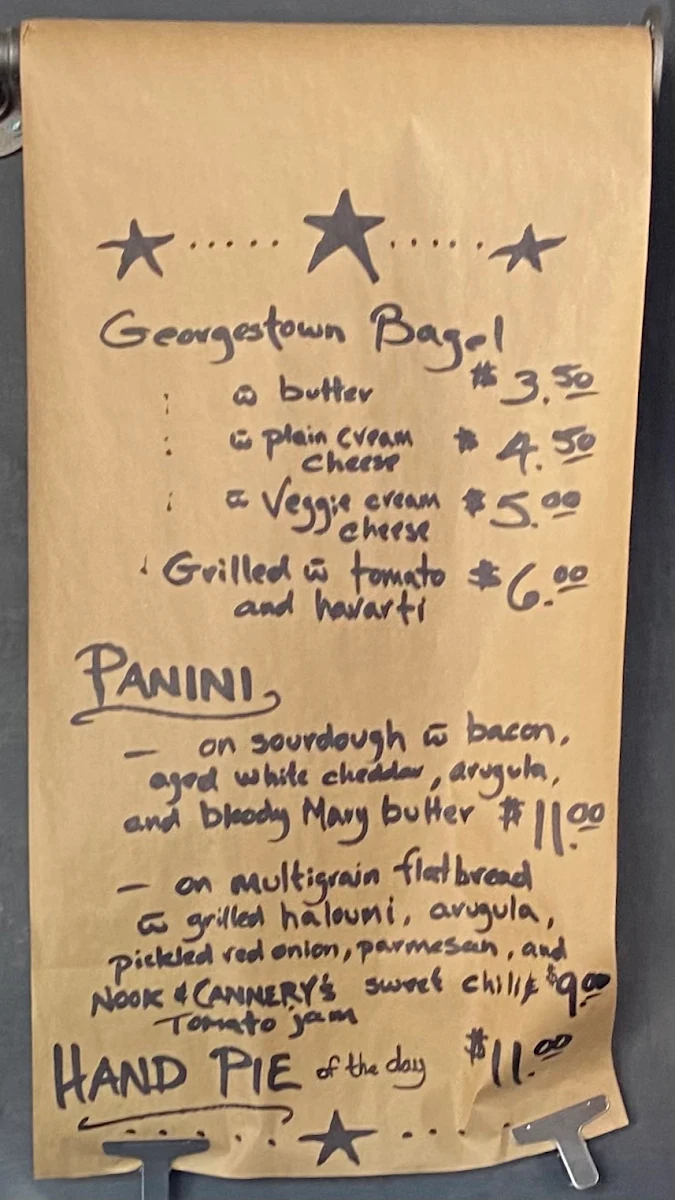 Georgestown Bagel
w̄ butter $3.50
w̄ plain cream $4.50
cheese
w̄ Veggie cream $5.00
cheese
Grilled w̄ tomato $6.00
and havarti
PANINI
- on sourdough w̄ bacon,
aged white cheddar, arugula,
and bloody Mary butter $11.00
- on multigrain flatbread
w̄ grilled haloumi, arugula,
pickled red onion, parmesan, and
NOOK & CANNERY'S sweet chili $9.00
Tomato jam
HAND PIE of the day $11.00